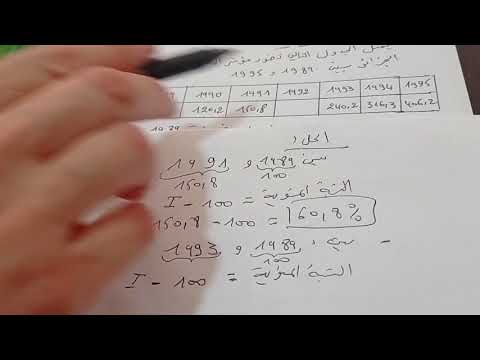 يمثل الجدول التالي تطور مؤشر
الجزائر بين 1989 و 1995
9 1990 1991 1992 1993 1994 1995
120,2 150,8 240,2 316,3 406,2
الحل:
بين 1989 و 1991
100 150,8
النسبة المئوية = I - 100
150,8 - 100 = 60,8%
- بين 1989 و 1993
100
النسبة المئوية = I - 100